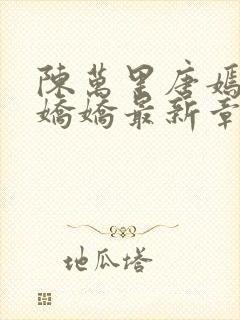 陳萬里唐嫣
嬌嬌最新章
地瓜塔